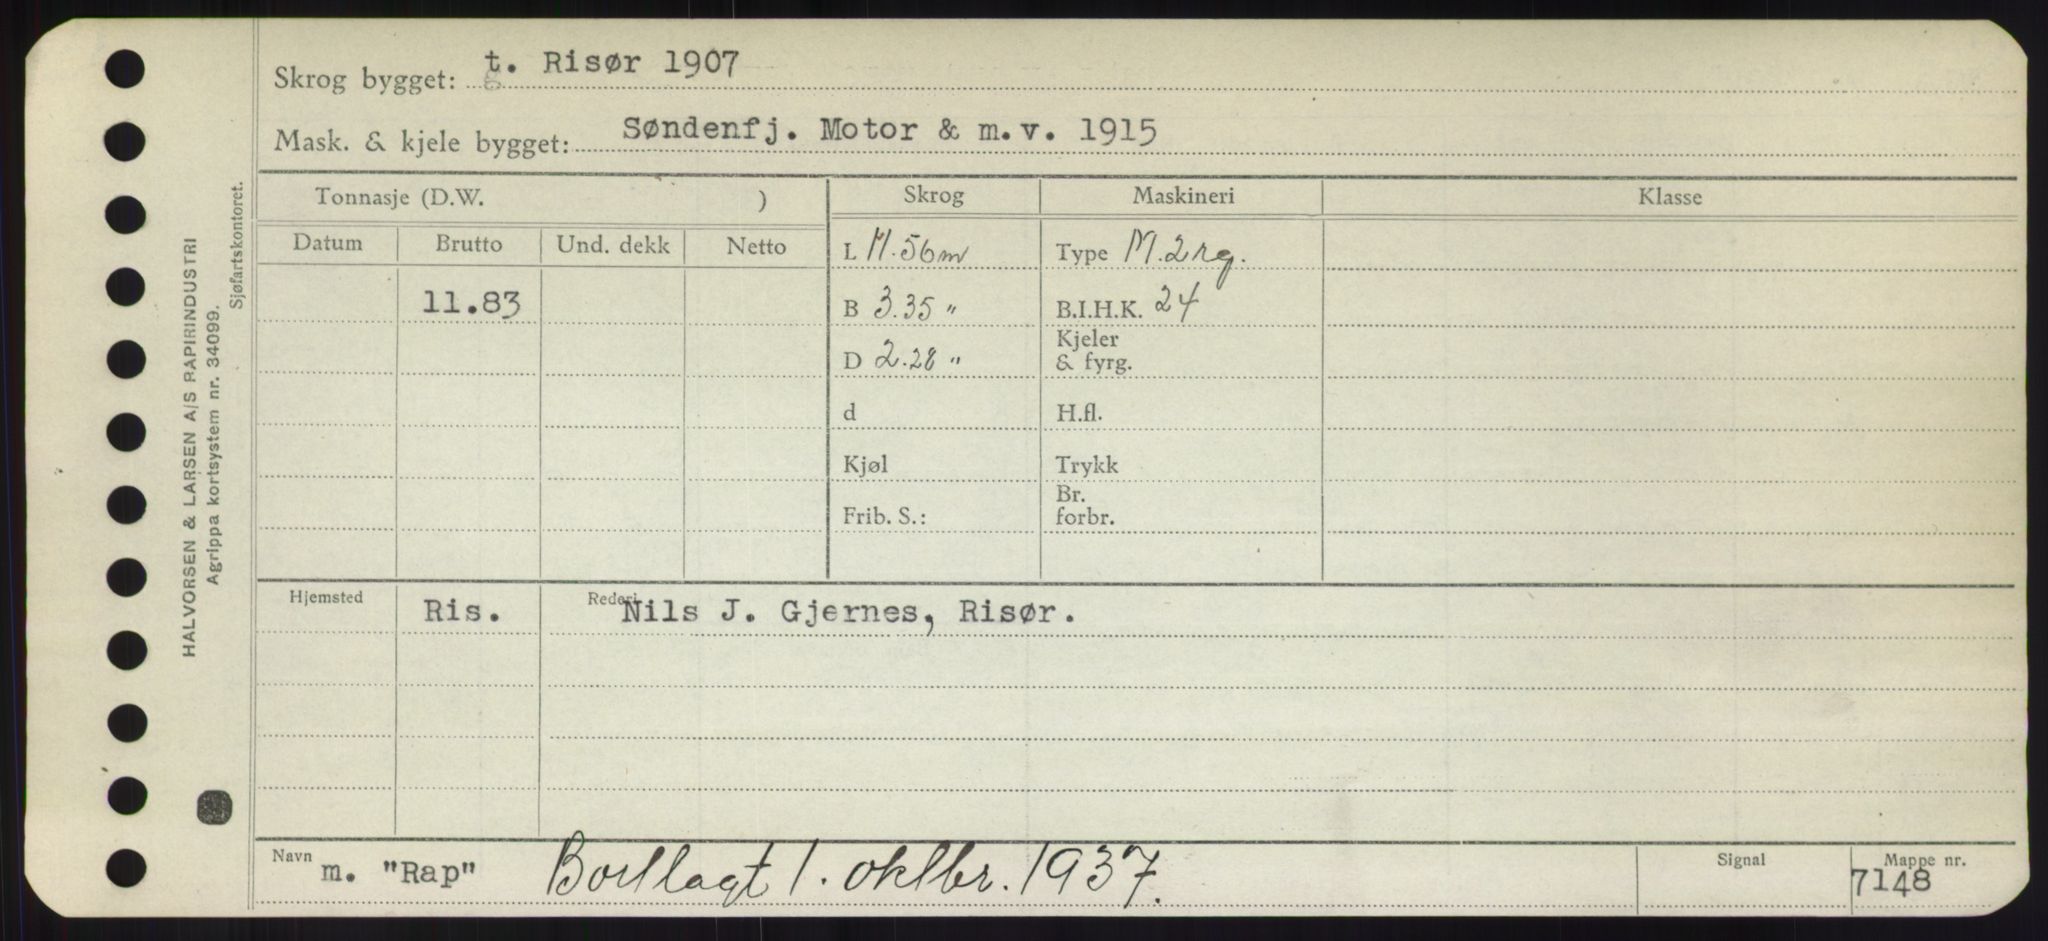 Skrog bygget: t. Risør 1907
Mask. & kjele bygget: Søndenfj. Motor & m.v. 1915
Tonnasje (D.W. )
Skrog
Maskineri
Klasse
Datum Brutto Und. dekk Netto
L 11.56 m
Type M. 2 rg.
11.83
B 3.35 "
B.I.H.K. 24
D 2.28 "
Kjeler
& fyrg.
d
H.fl.
Kjøl
Trykk
Frib. S.:
Br.
forbr.
Hjemsted Ris.
Rederi Nils J. Gjernes, Risør.
Navn m. "Rap" Bortlagt 1. oktbr. 1937.
Signal
Mappe nr.
7148
HALVORSEN & LARSEN A/S PAPIRINDUSTRI
Agrippa kortsystem nr. 34099.
Sjøfartskontoret.